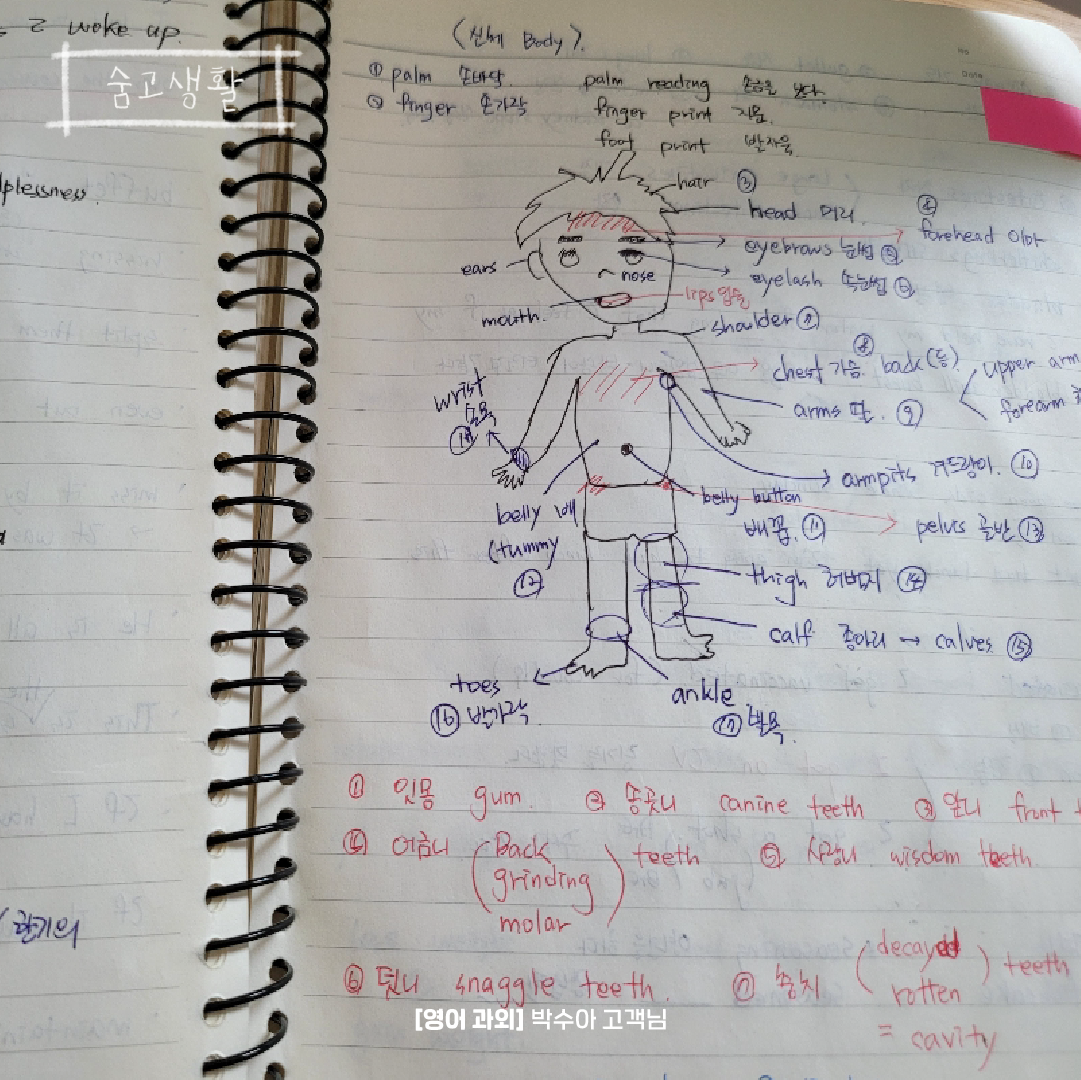 I woke up.
숨고생활
plessness.
(신체 Body).
① palm 손바닥. palm reading 손금을 보다.
② finger 손가락 finger print 지문.
foot print 발자국
hair ③
head 머리.
④
forehead 이마
eyebrows 눈썹 ⑤
ears
nose
eyelash 속눈썹 ⑥
lips 입술
mouth.
shoulder ⑦
⑧
chest 가슴. back (등)
upper arm
wrist
손목
arms 팔. ⑨
forearm
armpits 겨드랑이. ⑩
belly 배
belly button
배꼽. ⑪
pelvis 골반 ⑬
(tummy
⑫
thigh 허벅지 ⑭
calf 종아리 → calves ⑮
toes
⑯ 발가락
ankle
⑰ 발목.
① 잇몸 gum. ② 송곳니 canine teeth ③ 앞니 front
④ 어금니 (Back
grinding
molar) teeth ⑤ 사랑니. wisdom teeth.
/ 한기의
⑥ 덧니 snaggle teeth. ⑦ 충치 (decayed
rotten) teeth
= cavity
[영어 과외] 박수아 고객님